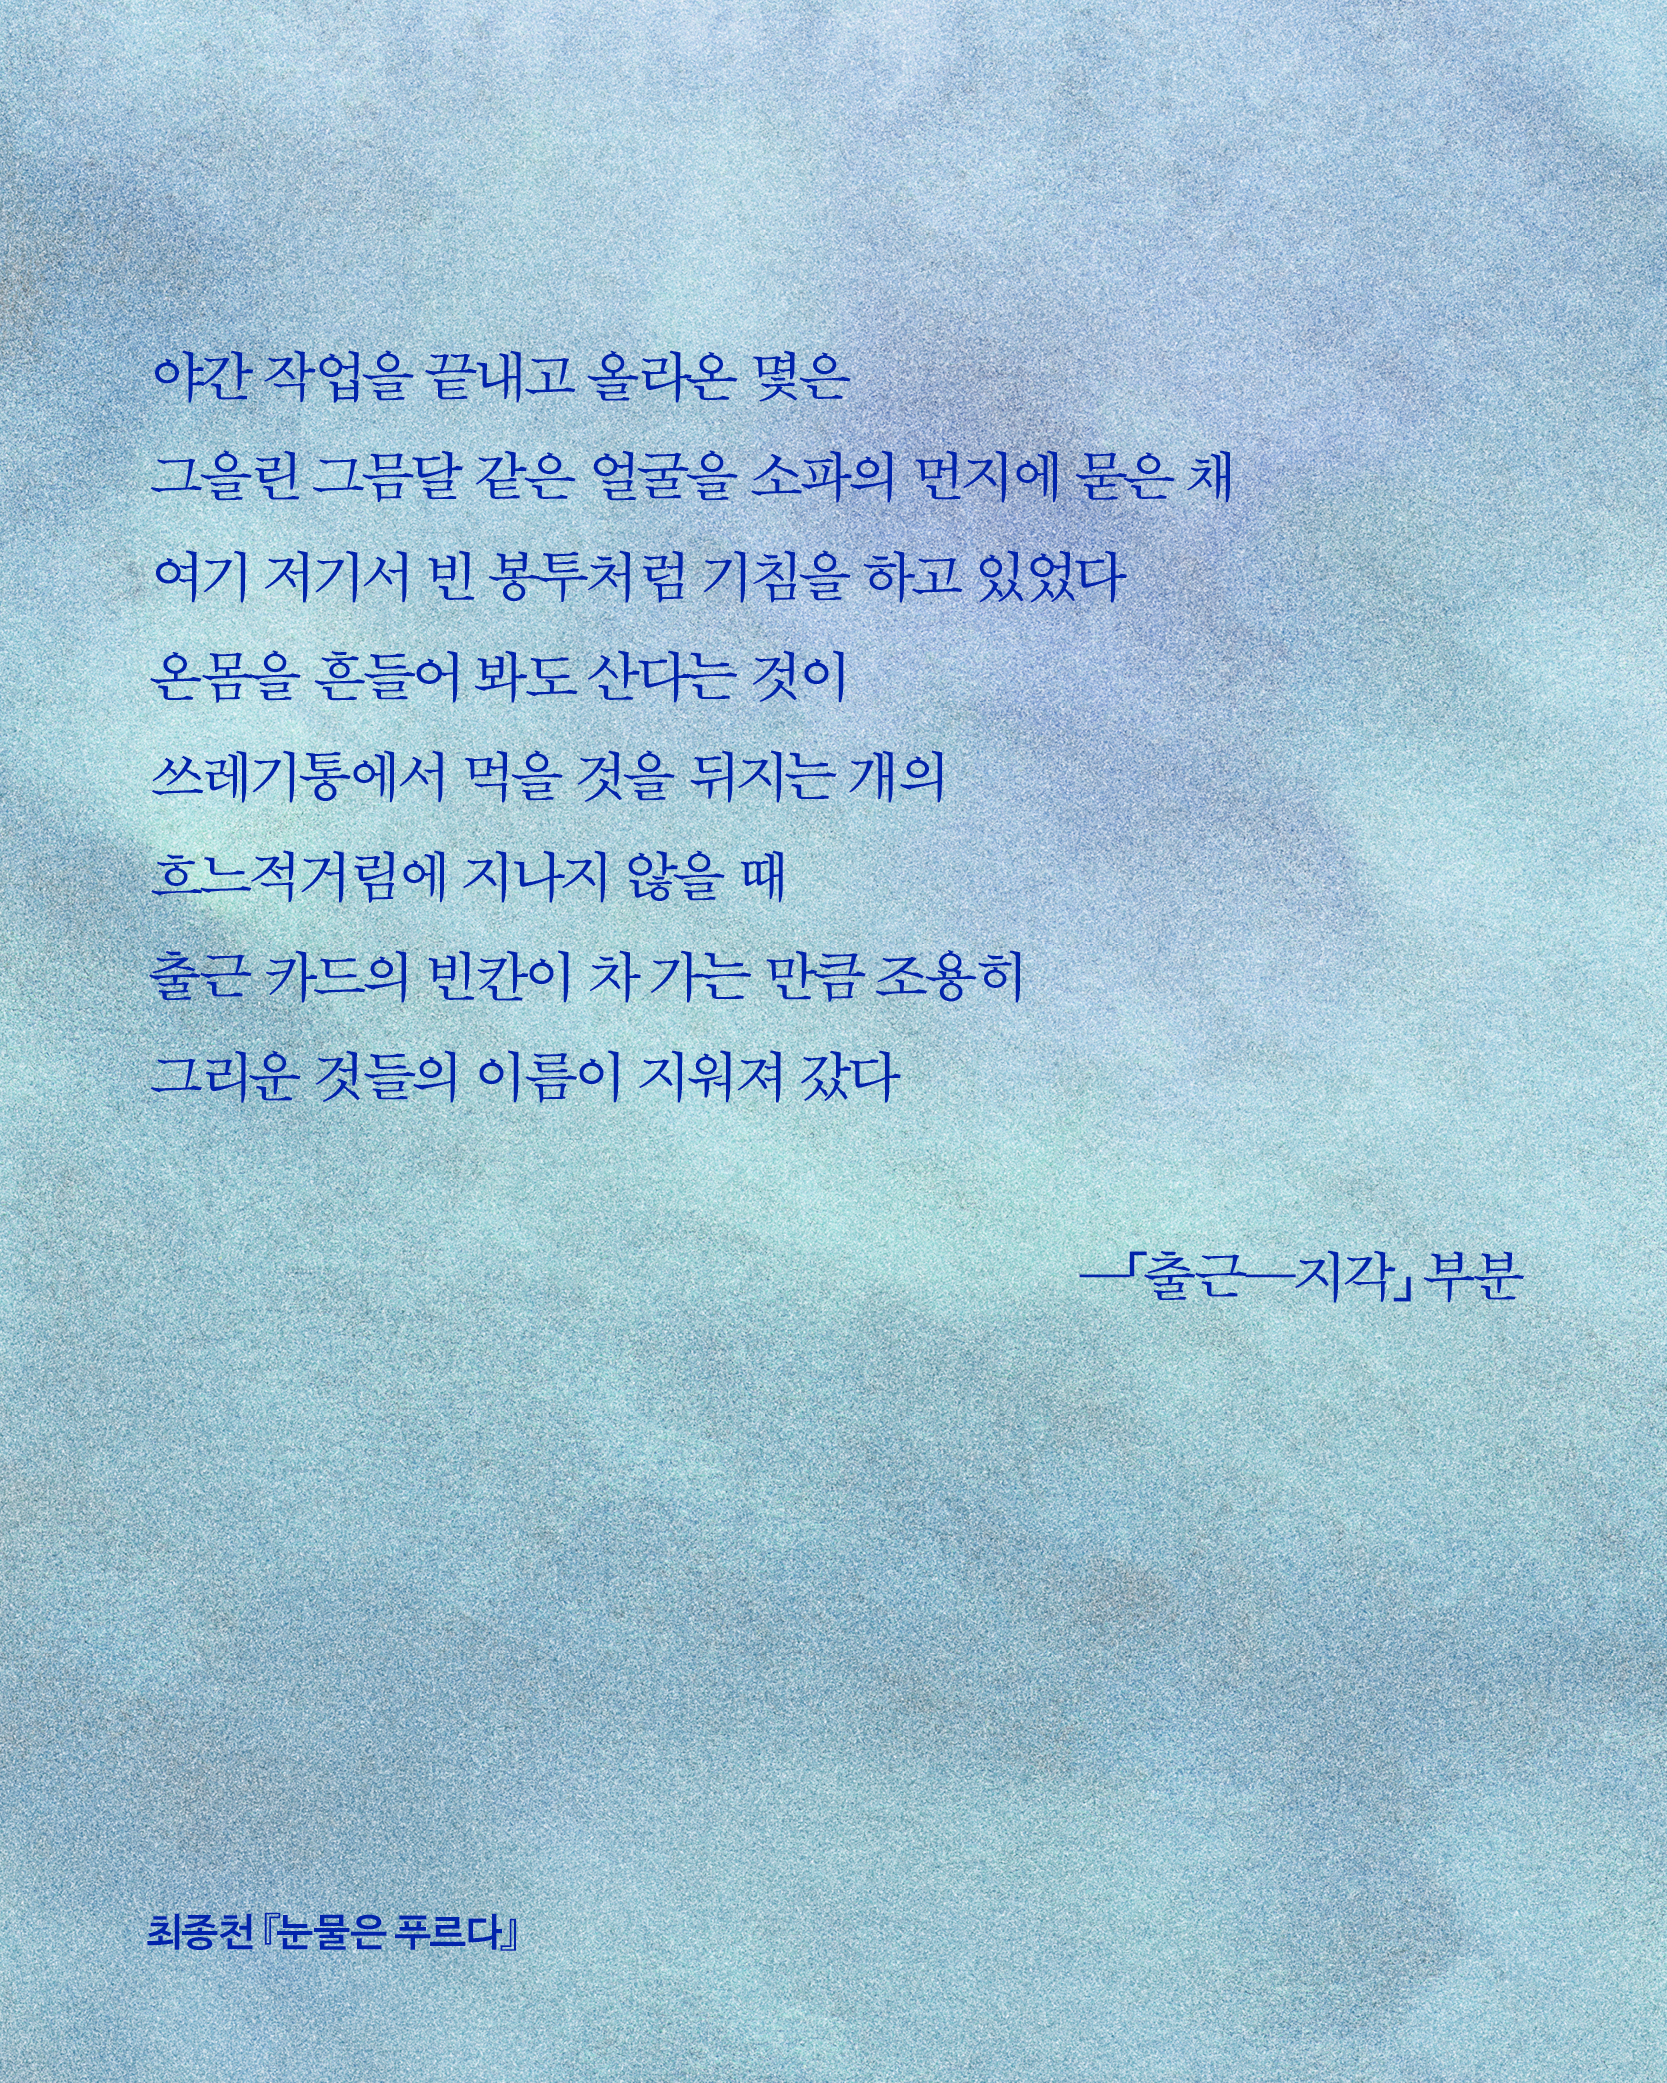 야간 작업을 끝내고 올라온 몇은
그을린 그믐달 같은 얼굴을 소파의 먼지에 묻은 채
여기 저기서 빈 봉투처럼 기침을 하고 있었다
온몸을 흔들어 봐도 산다는 것이
쓰레기통에서 먹을 것을 뒤지는 개의
흐느적거림에 지나지 않을 때
출근 카드의 빈칸이 차 가는 만큼 조용히
그리운 것들의 이름이 지워져 갔다
―「출근―지각」 부분
최종천 『눈물은 푸르다』